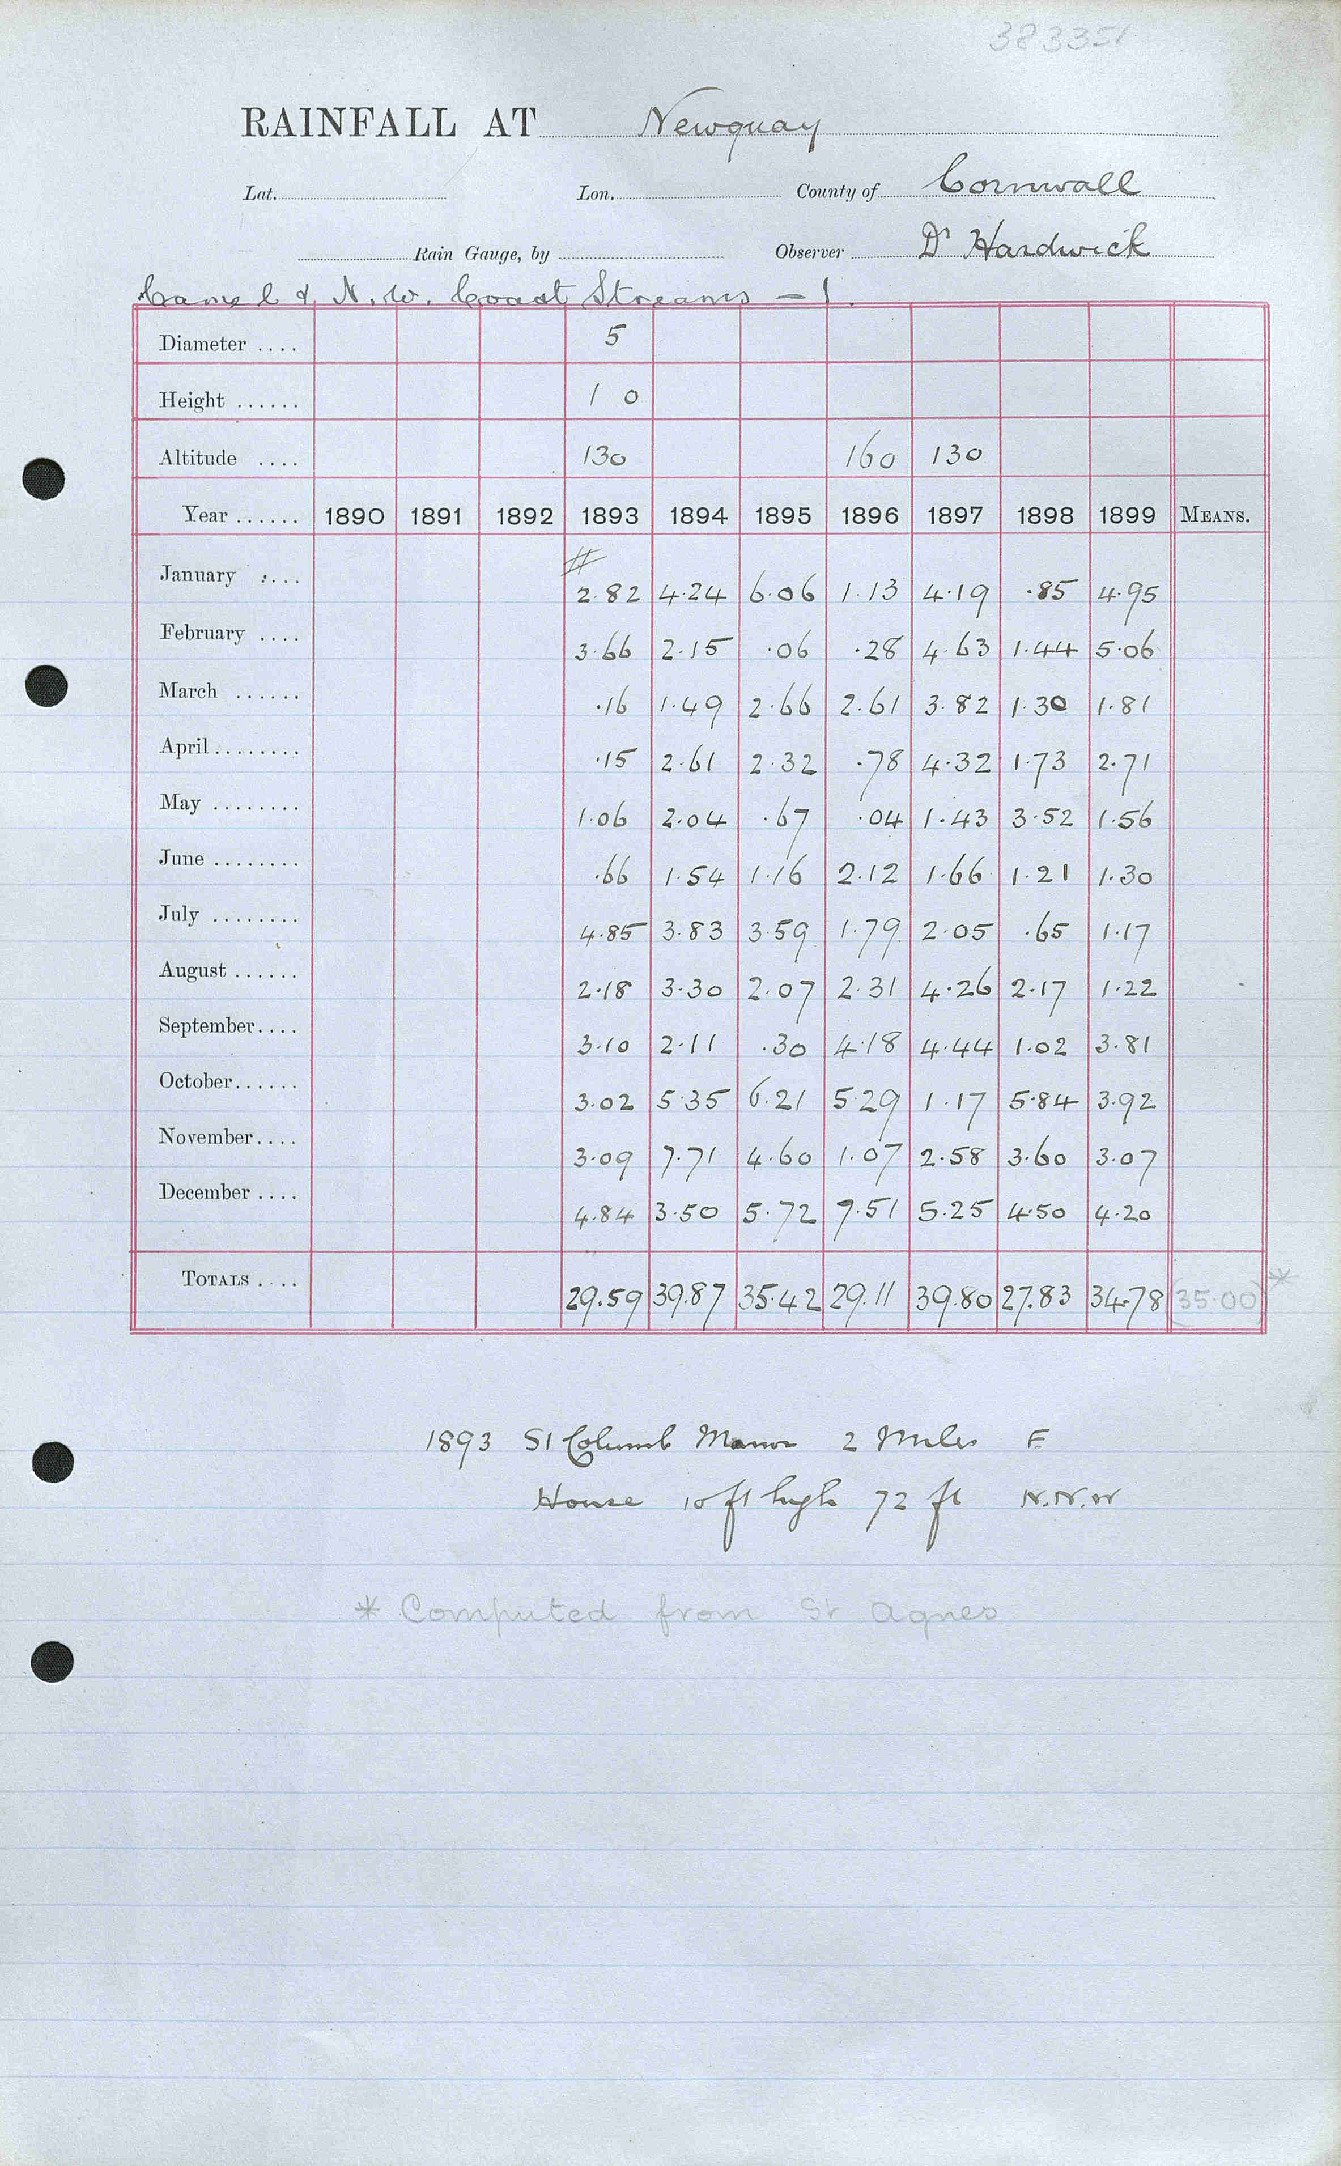 383351
RAINFALL AT Newquay
Lat. Lon. County of Cornwall
Rain Gauge, by Observer Dr Hardwick
Camel & N.W. Coast Streams - 1.
Diameter .... 5
Height ...... 1 0
Altitude .... 130 160 130
Year ...... 1890 1891 1892 1893 1894 1895 1896 1897 1898 1899 MEANS.
#
January .... 2.82 4.24 6.06 1.13 4.19 .85 4.95
February .... 3.66 2.15 .06 .28 4.63 1.44 5.06
March ...... .16 1.49 2.66 2.61 3.82 1.30 1.81
April........ .15 2.61 2.32 .78 4.32 1.73 2.71
May ........ 1.06 2.04 .67 .04 1.43 3.52 1.56
June ........ .66 1.54 1.16 2.12 1.66 1.21 1.30
July ........ 4.85 3.83 3.59 1.79 2.05 .65 1.17
August ...... 2.18 3.30 2.07 2.31 4.26 2.17 1.22
September.... 3.10 2.11 .30 4.18 4.44 1.02 3.81
October...... 3.02 5.35 6.21 5.29 1.17 5.84 3.92
November.... 3.09 7.71 4.60 1.07 2.58 3.60 3.07
December .... 4.84 3.50 5.72 7.51 5.25 4.50 4.20
TOTALS .... 29.59 39.87 35.42 29.11 39.80 27.83 34.78 (35.00)*
1893 St Columb Manor 2 Miles E
House 10 ft high 72 ft N.N.W
* Computed from St Agnes